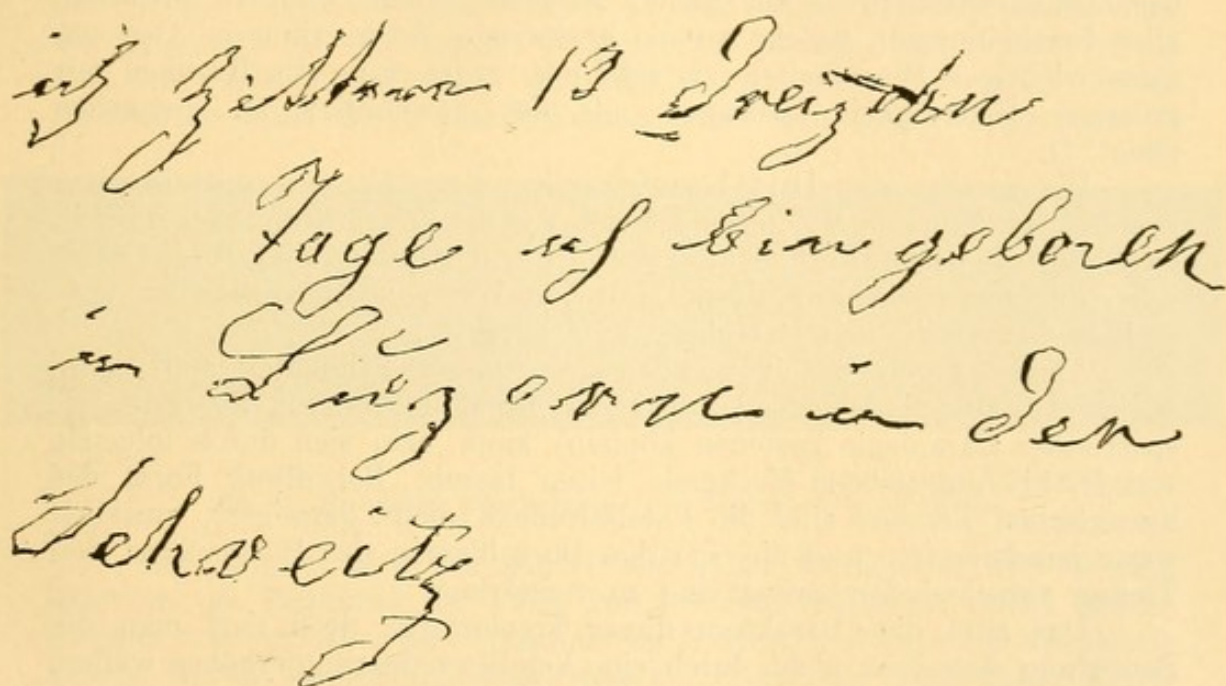 ich Zittern 13 Dreizehn
Tage ich bin geboren
in Luzern in der
Schweitz